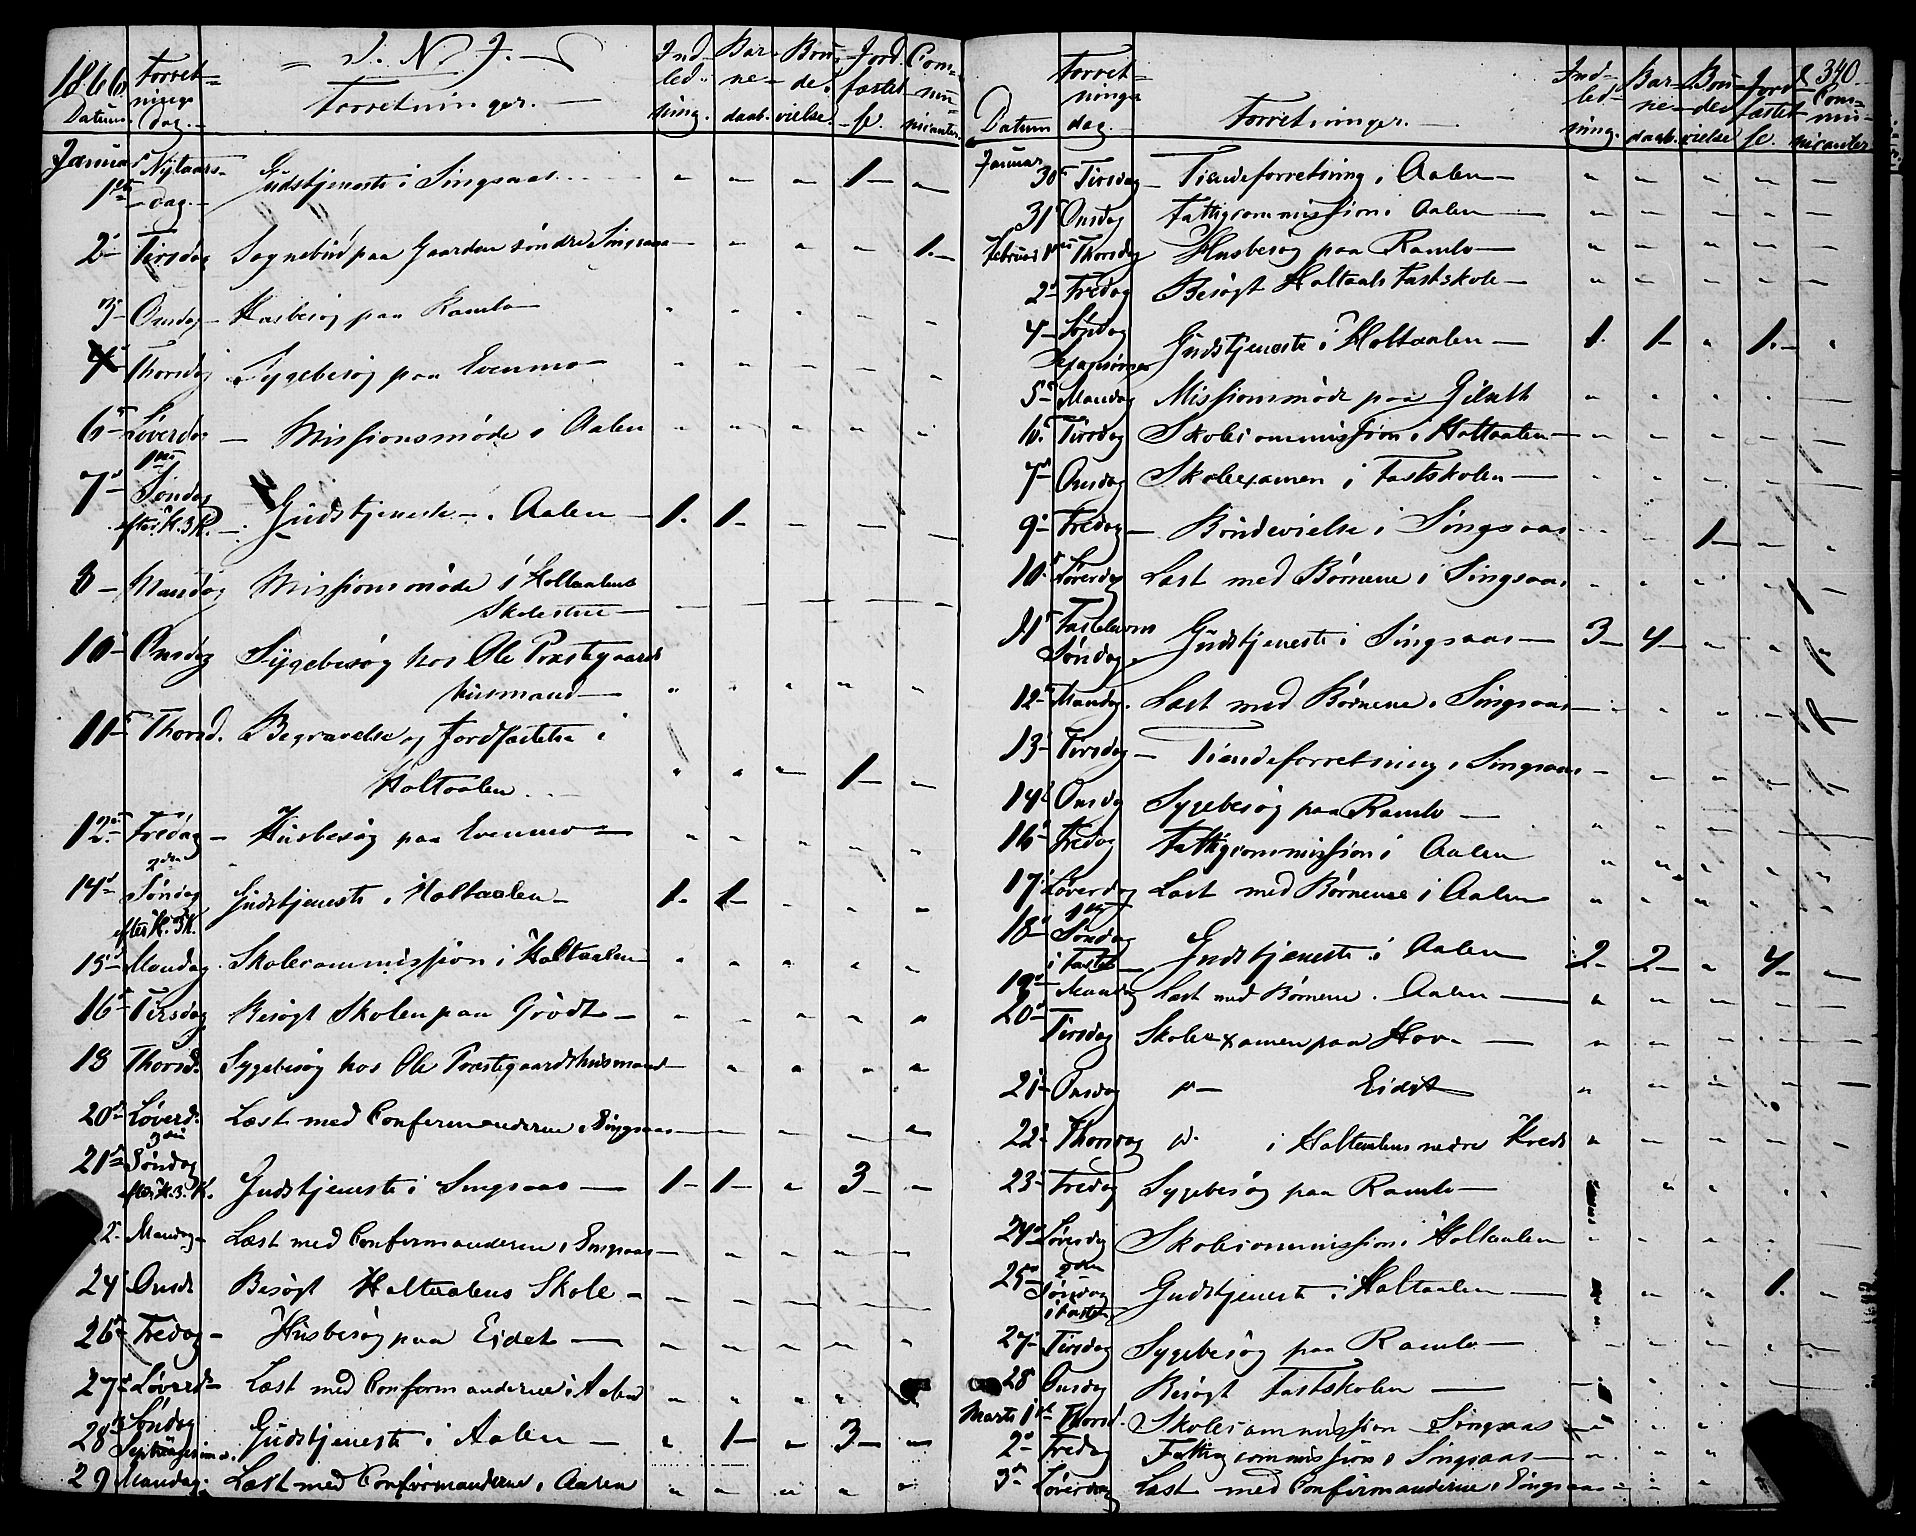 1866. Forret- J. N. J. Ind- Bar- Bru- Jord- Com-
nings led- ne- de- fæstel- mu-
Datum. dag. Forretninger. ning. daab. vielse. se. nicanter.
Januar Nytaars-
1ste dag. Gudstjeneste i Singsaas " " " 1 "
2 Tirsdag Sognebud paa Gaarden søndre Singsaas " " " " 1.
3 Onsdag Husbesøg paa Ramlo " " " " "
4 Thorsdag Sygebesøg paa Evenmo " " " " "
6 Løverdag Missionsmøde i Aalen " " " " "
1ste
7 Søndag
efter H.3K. Gudstjeneste i Aalen 1. 1 " " "
8 Mandag Missionsmøde i Holtaalens
Skolestue " " " " "
10 Onsdag Sygebesøg hos Ole Præstegaards
husmand " " " " "
11 Thorsd. Begravelse og Jordfæstelse i
Holtaalen " " " 1 "
12 Fredag Husbesøg paa Evenmo " " " " "
2den
14 Søndag Gudstjeneste i Holtaalen 1. 1 " " "
efter H.3K.
15 Mandag Skolecommission i Holtaalen " " " " "
16 Tirsdag Besøgt Skolen paa Grødt " " " " "
18 Thorsd. Sygebesøg hos Ole Præstegaardshusmand " " " "
20 Løverd. Læst med Confirmanderne i Singsaas " " " " "
3die
21 Søndag
efter H.3.K. Gudstjeneste i Singsaas 1 1 " 3 "
22 Mandag Læst med Confirmanderne i Singsaas " " " "
24 Onsd. Besøgt Holtaalens Skole " " " " "
26 Fredag Husbesøg paa Eidet " " " " "
27 Løverd. Læst med Confirmanderne i Aalen " " " "
28 Søndag
Septuagesima. Gudstjeneste i Aalen " 1 " 3 "
29 Mandag. Læst med Confirmanderne i Aalen " " " " "
340
Forret- Ind- Bar- Bru- Jord- Com-
nings led- ne- de- fæstel- mu-
Datum dag. Forretninger. ning. daab. vielse se. nicanter
Januar
30 Tirsdag Tiendeforretning i Aalen " " " " "
31 Onsdag Fattigcommission i Aalen " " " " "
Februar 1ste Thorsdag Husbesøg paa Ramlo " " " " "
2 Fredag Besøgt Holtaals Fastskole " " " " "
4 Søndag
Sexagesima Gudstjeneste i Holtaalen 1. 1 " 1. "
5 Mandag Missionsmøde paa " " " " "
6. Tirsdag Skolecommission i Holtaalen " " " " "
7 Onsdag Skoleexamen i Fastskolen " " " " "
9 Fredag Brudevielse i Singsaas " " 1 " "
10 Løverdag Læst med Børnene i Singsaas " " " " "
11 Fastelavns
Søndag Gudstjeneste i Singsaas 3 4 " " "
12 Mandag. Læst med Børnene i Singsaas " " " " "
13 Tirsdag Tiendeforretning i Singsaas " " " " "
14 Onsdag Sygebesøg paa Ramlo " " " " "
16 Fredag Fattigcommission i Aalen " " " " "
17 Løverdag Læst med Børnene i Aalen " " " " "
18 1ste
Søndag
i Faste Gudstjeneste i Aalen 2 2 " 4 "
19 Mandag Læst med Børnene i Aalen " " " " "
20
Tirsdag Skoleexamen paa Hov " " " " "
21 Onsdag " Eidet " " " " "
22 Thorsdag i Holtaalens nedre Kreds " " " " "
23 Fredag Sygebesøg paa Ramlo " " " "
24 Løverdag Skolecommission i Holtaalen " " " " "
25 2den
Søndag Gudstjeneste i Holtaalen " " " 1. "
i Faste
27 Tirsdag Sygebesøg paa Ramlo " " " " "
28 Onsdag Besøgt Fastskolen " " " " "
Marts 1ste Thorsd. Skolecommission i Singsaas " " " " "
2 Fredag Fattigcommission i Singsaas " " " "
3 Løverdag Læst med Confirmanderne i Singsaas " " " "